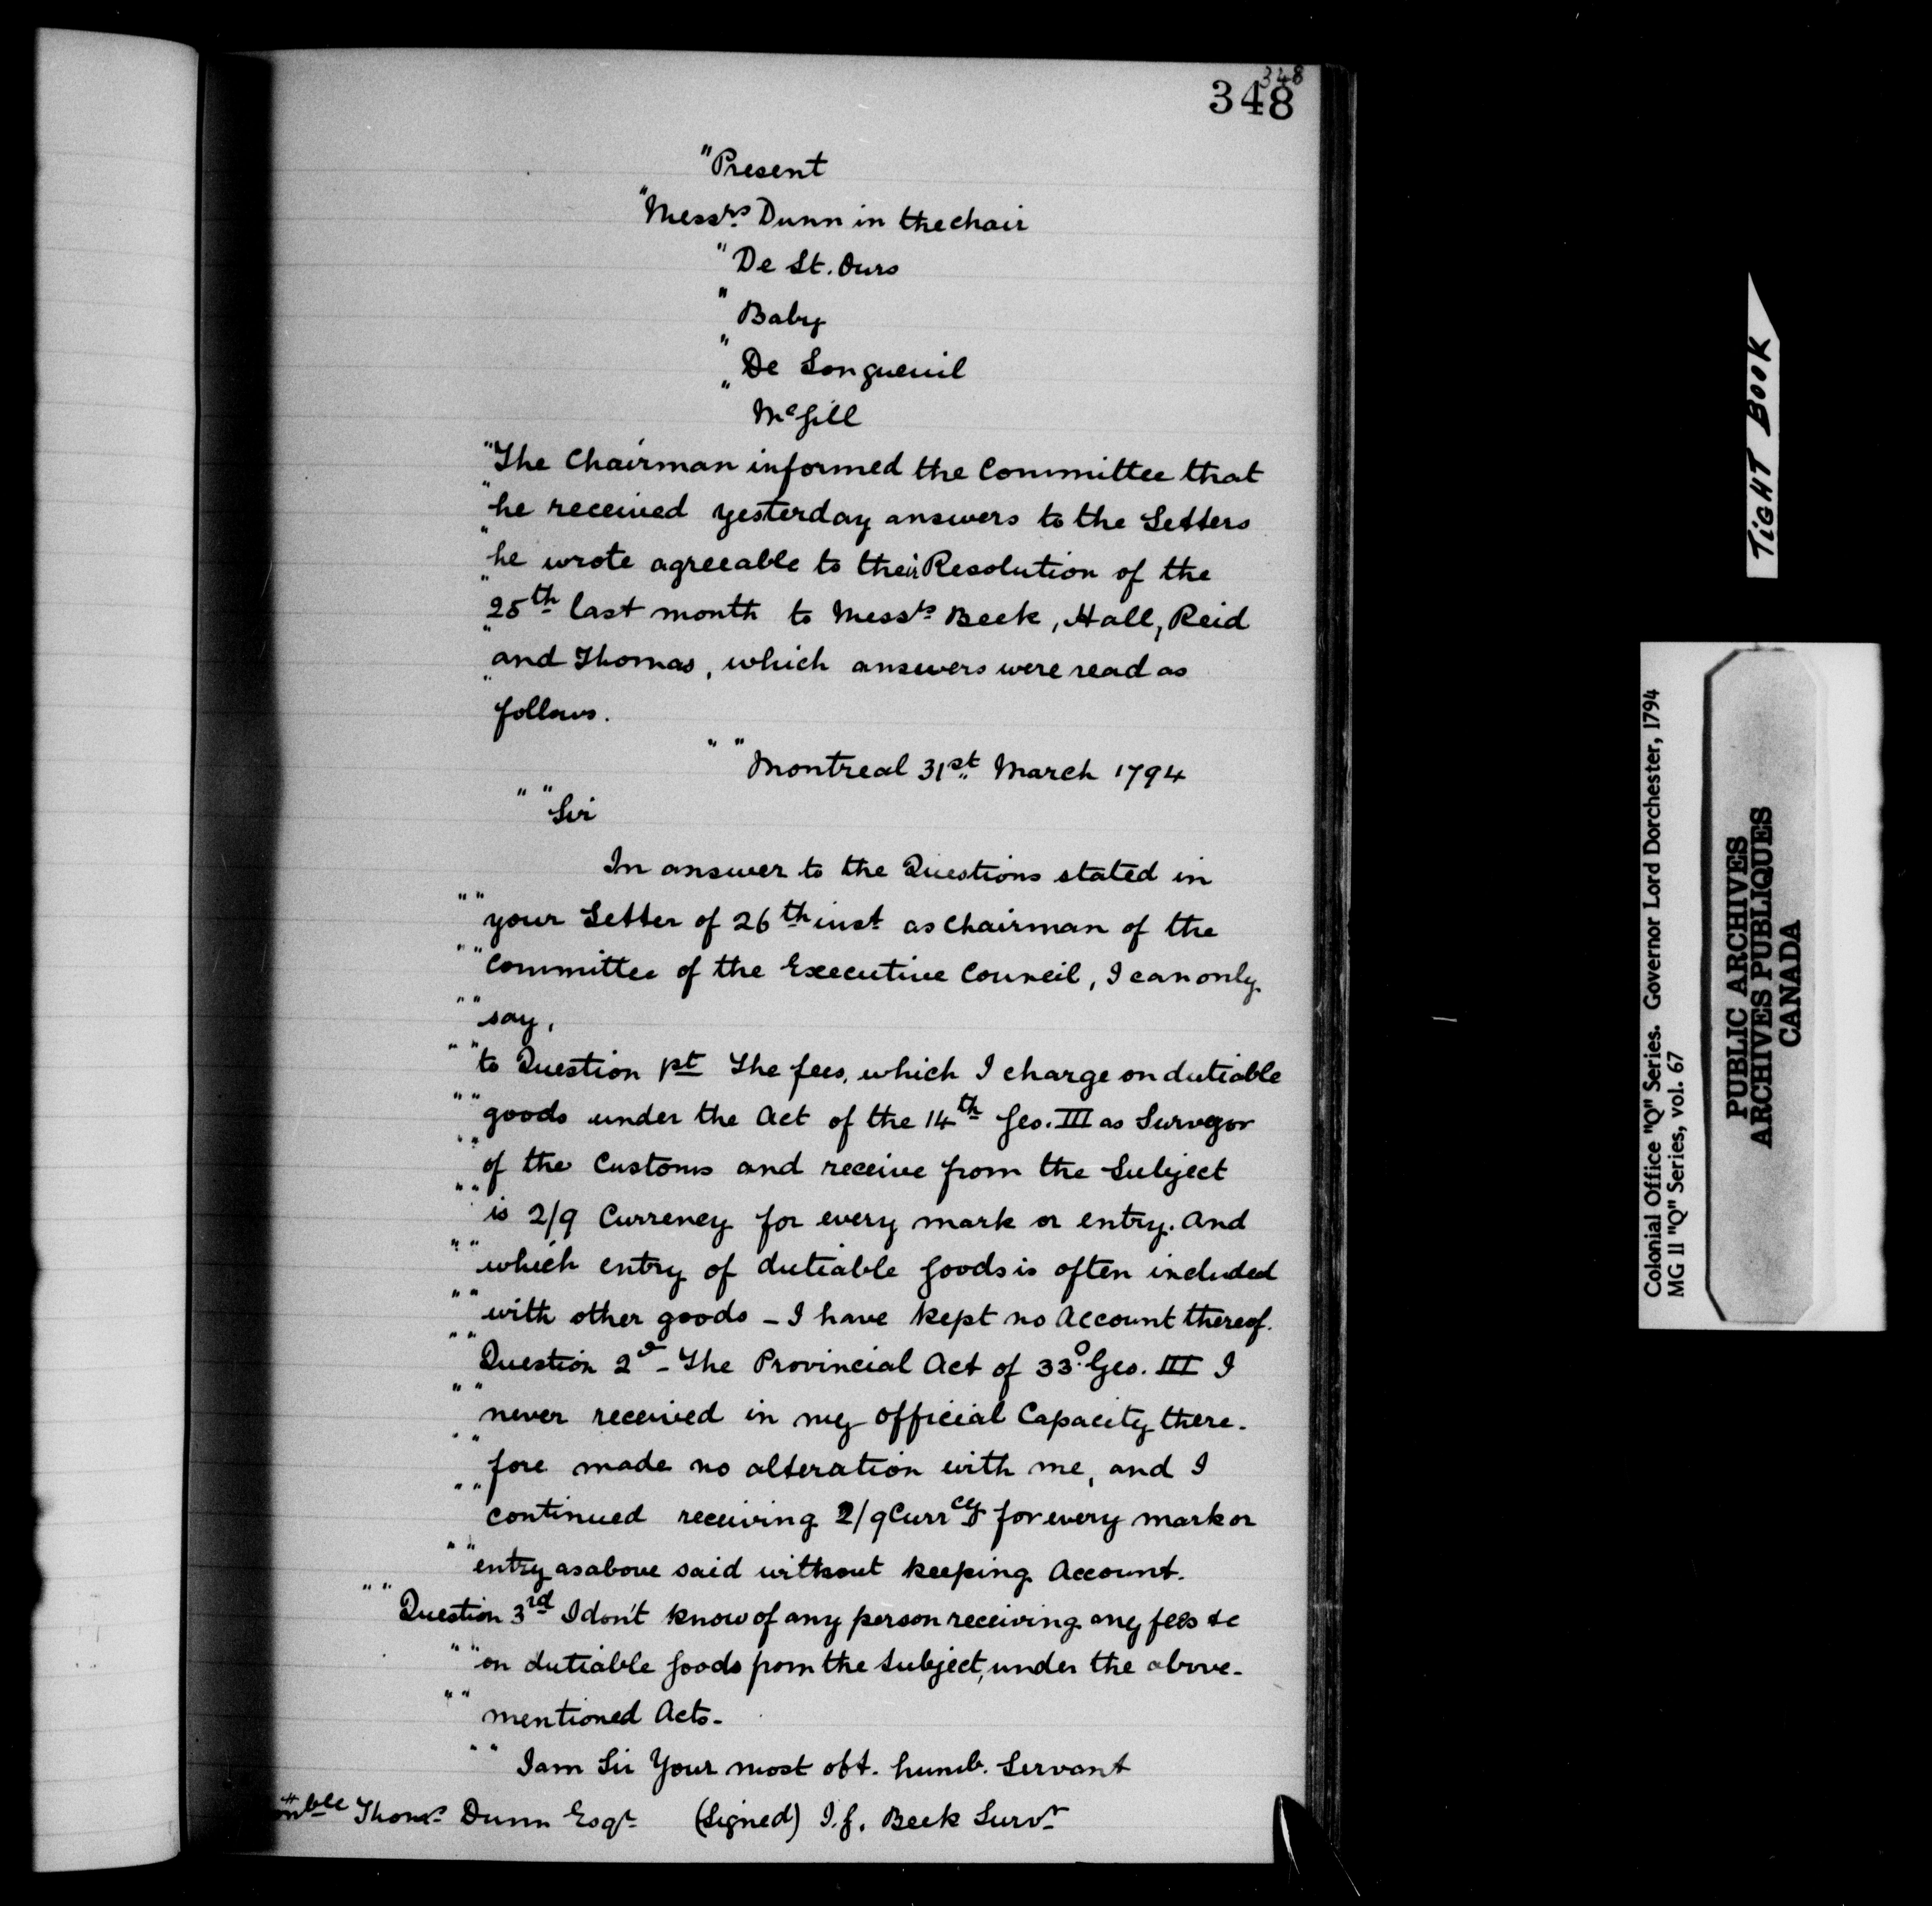 348
348
"Present
"Messrs Dunn in the chair
" De St. Ours
" Baby
" De Longueuil
" McGill
"The Chairman informed the Committee that
"he received yesterday answers to the Letters
"he wrote agreeable to their Resolution of the
"25th last month to Messrs Beek, Hall, Reid
"and Thomas, which answers were read as
"follows.
" "Montreal 31st March 1794
" "Sir
In answer to the Questions stated in
" "your Letter of 26th inst as Chairman of the
" "Committee of the Executive Council, I can only
" "say,
" "to Question 1st The fees, which I charge on dutiable
" "goods under the Act of the 14th Geo. III as Surveyor
" "of the Customs and receive from the Subject
" "is 2/9 Currency for every mark or entry. And
" "which entry of dutiable goods is often included
" "with other goods – I have kept no Account thereof.
" "Question 2d – The Provincial Act of 33o. Geo. III I
" "never received in my official Capacity there-
" "fore made no alteration with me, and I
" "continued receiving 2/9 Currcy for every mark or
" "entry as above said without keeping Account.
" "Question 3rd I don't know of any person receiving any fees &c
" "on dutiable goods from the Subject, under the above-
" "mentioned Acts-
" " I am Sir Your most obt. humb. Servant
onble Thoms Dunn Esqr (Signed) I. G. Beek Survr
TIGHT BOOK
Colonial Office "Q" Series. Governor Lord Dorchester, 1794
MG 11 "Q" Series, vol. 67
PUBLIC ARCHIVES
ARCHIVES PUBLIQUES
CANADA